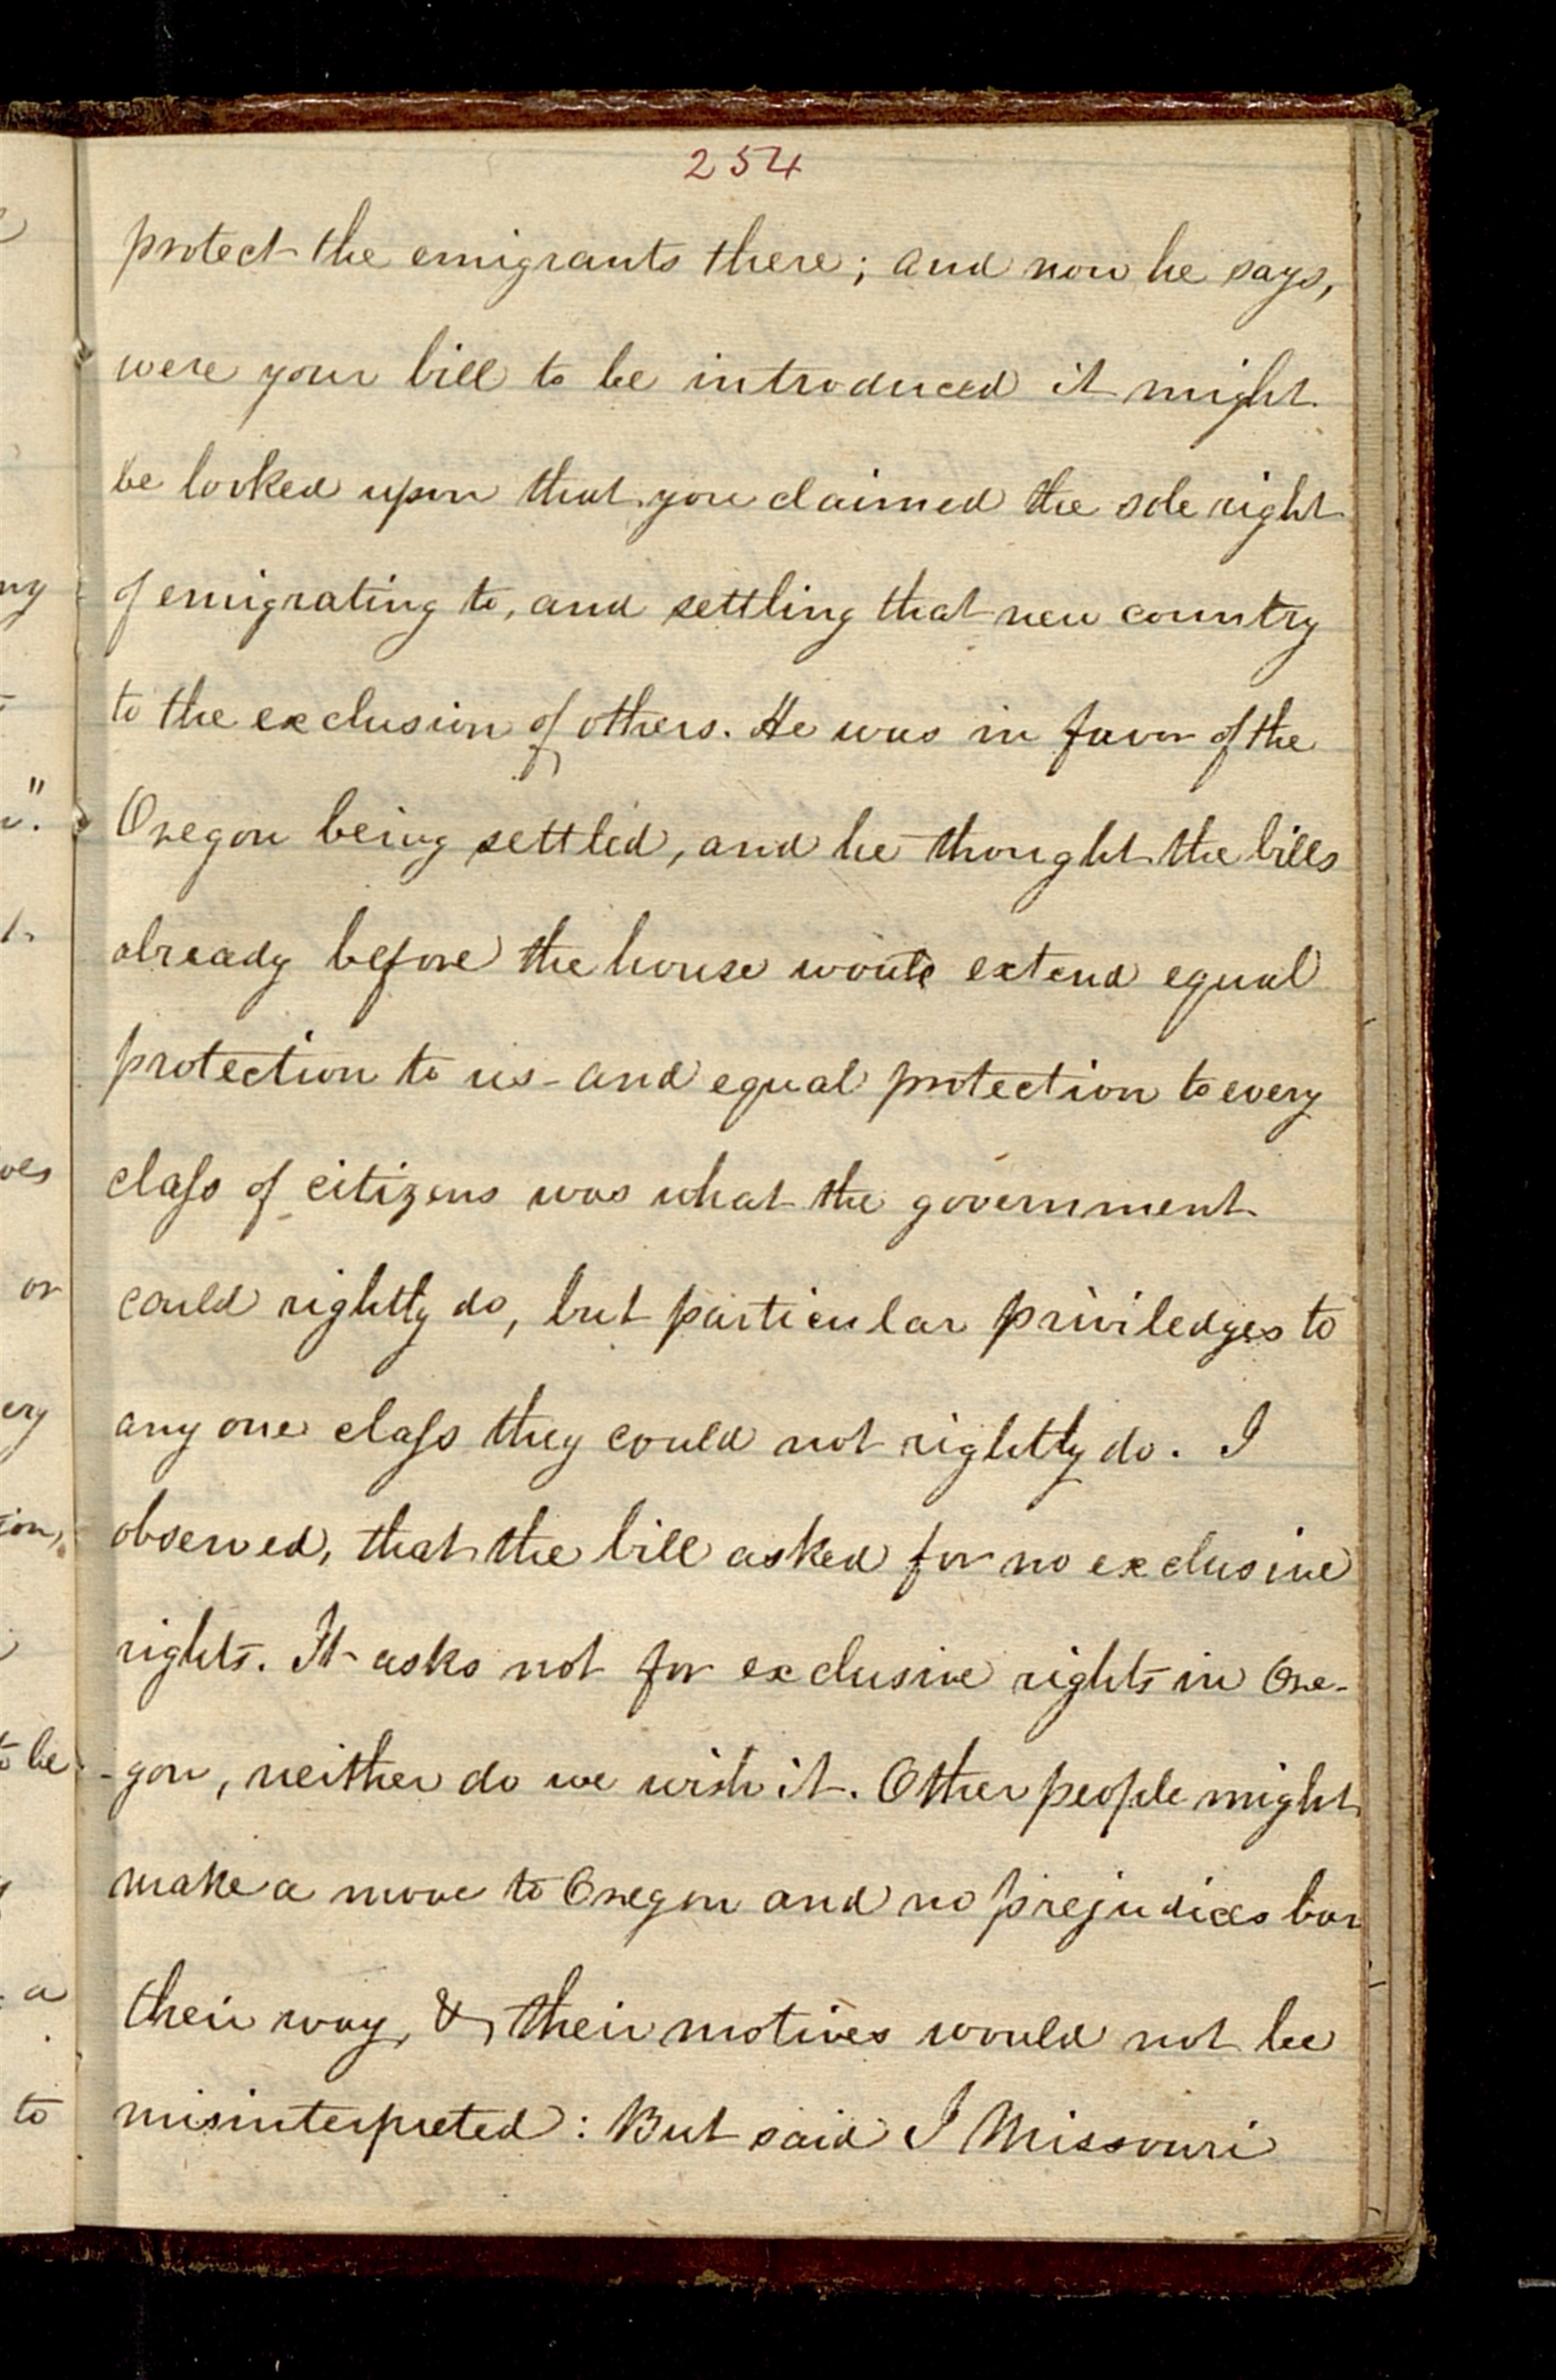 254
protect the emigrants there; and now he says,
were your bill to be introduced it might
be looked upon that you claimed the sole right
of emigrating to, and settling that new country
to the exclusion of others. He was in favor of the
Oregon being settled, and he thought the bills
already before the house would extend equal
protection to us - and equal protection to every
class of citizens was what the government
could rightly do, but particular priviledges to
any one class they could not rightly do. I
observed, that the bill asked for no exclusive
rights. It asks not for exclusive rights in Ore-
-gon, neither do we wish it. Other people might
make a move to Oregon and no prejudices bar
their way, & their motives would not be
misinterpreted: But said I Missouri
ny
"
oes
or
ery
ion,
to be
a
to